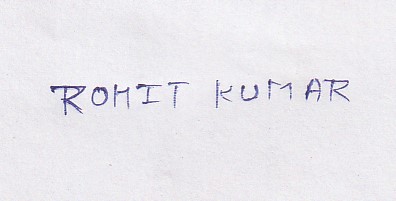 ROHIT KUMAR